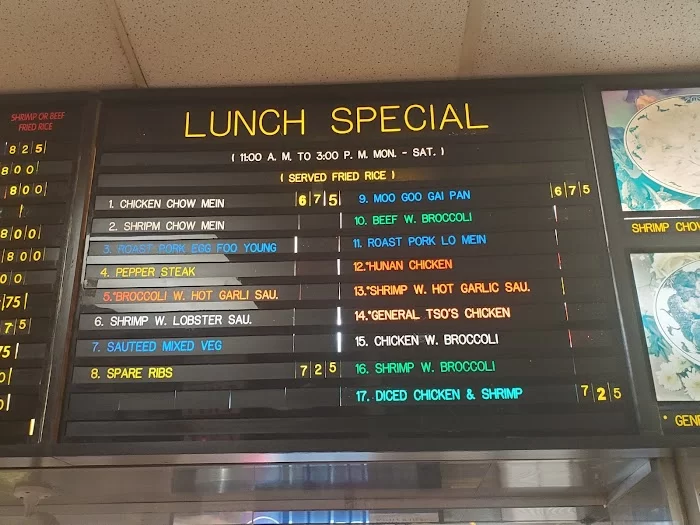 SHRIMP OR BEEF
FRIED RICE
825
800
800
800
800
75
75
75
LUNCH SPECIAL
( 11:00 A. M. TO 3:00 P. M. MON. - SAT. )
( SERVED FRIED RICE )
1. CHICKEN CHOW MEIN 675
2. SHRIPM CHOW MEIN
3. ROAST PORK EGG FOO YOUNG
4. PEPPER STEAK
5.*BROCCOLI W. HOT GARLI SAU.
6. SHRIMP W. LOBSTER SAU.
7. SAUTEED MIXED VEG
8. SPARE RIBS 725
9. MOO GOO GAI PAN 675
10. BEEF W. BROCCOLI
11. ROAST PORK LO MEIN
12.*HUNAN CHICKEN
13.*SHRIMP W. HOT GARLIC SAU.
14.*GENERAL TSO'S CHICKEN
15. CHICKEN W. BROCCOLI
16. SHRIMP W. BROCCOLI
17. DICED CHICKEN & SHRIMP 725
SHRIMP CHOW
* GENE